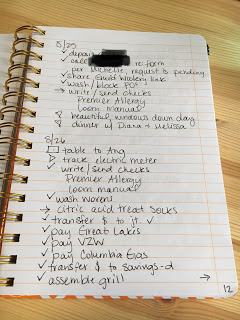 8/25
✓ deposit
✓ call re: form
per Michelle, request is pending
✓ share Guild Woolery link
✓ wash/block POT
→ write/send checks
Premier Allergy
loom manual
beautiful, windows down day
dinner w/ Diana + Melissa
8/26
table to Ang
▷ track electric meter
✓ write/send checks
Premier Allergy
loom manual
✓ wash woven
→ citric acid treat socks
✓ transfer $ to it. ✓
✓ pay Great Lakes
✓ pay VZW
✓ pay Columbia Gas
✓ transfer $ to savings-d
✓ assemble grill →
12